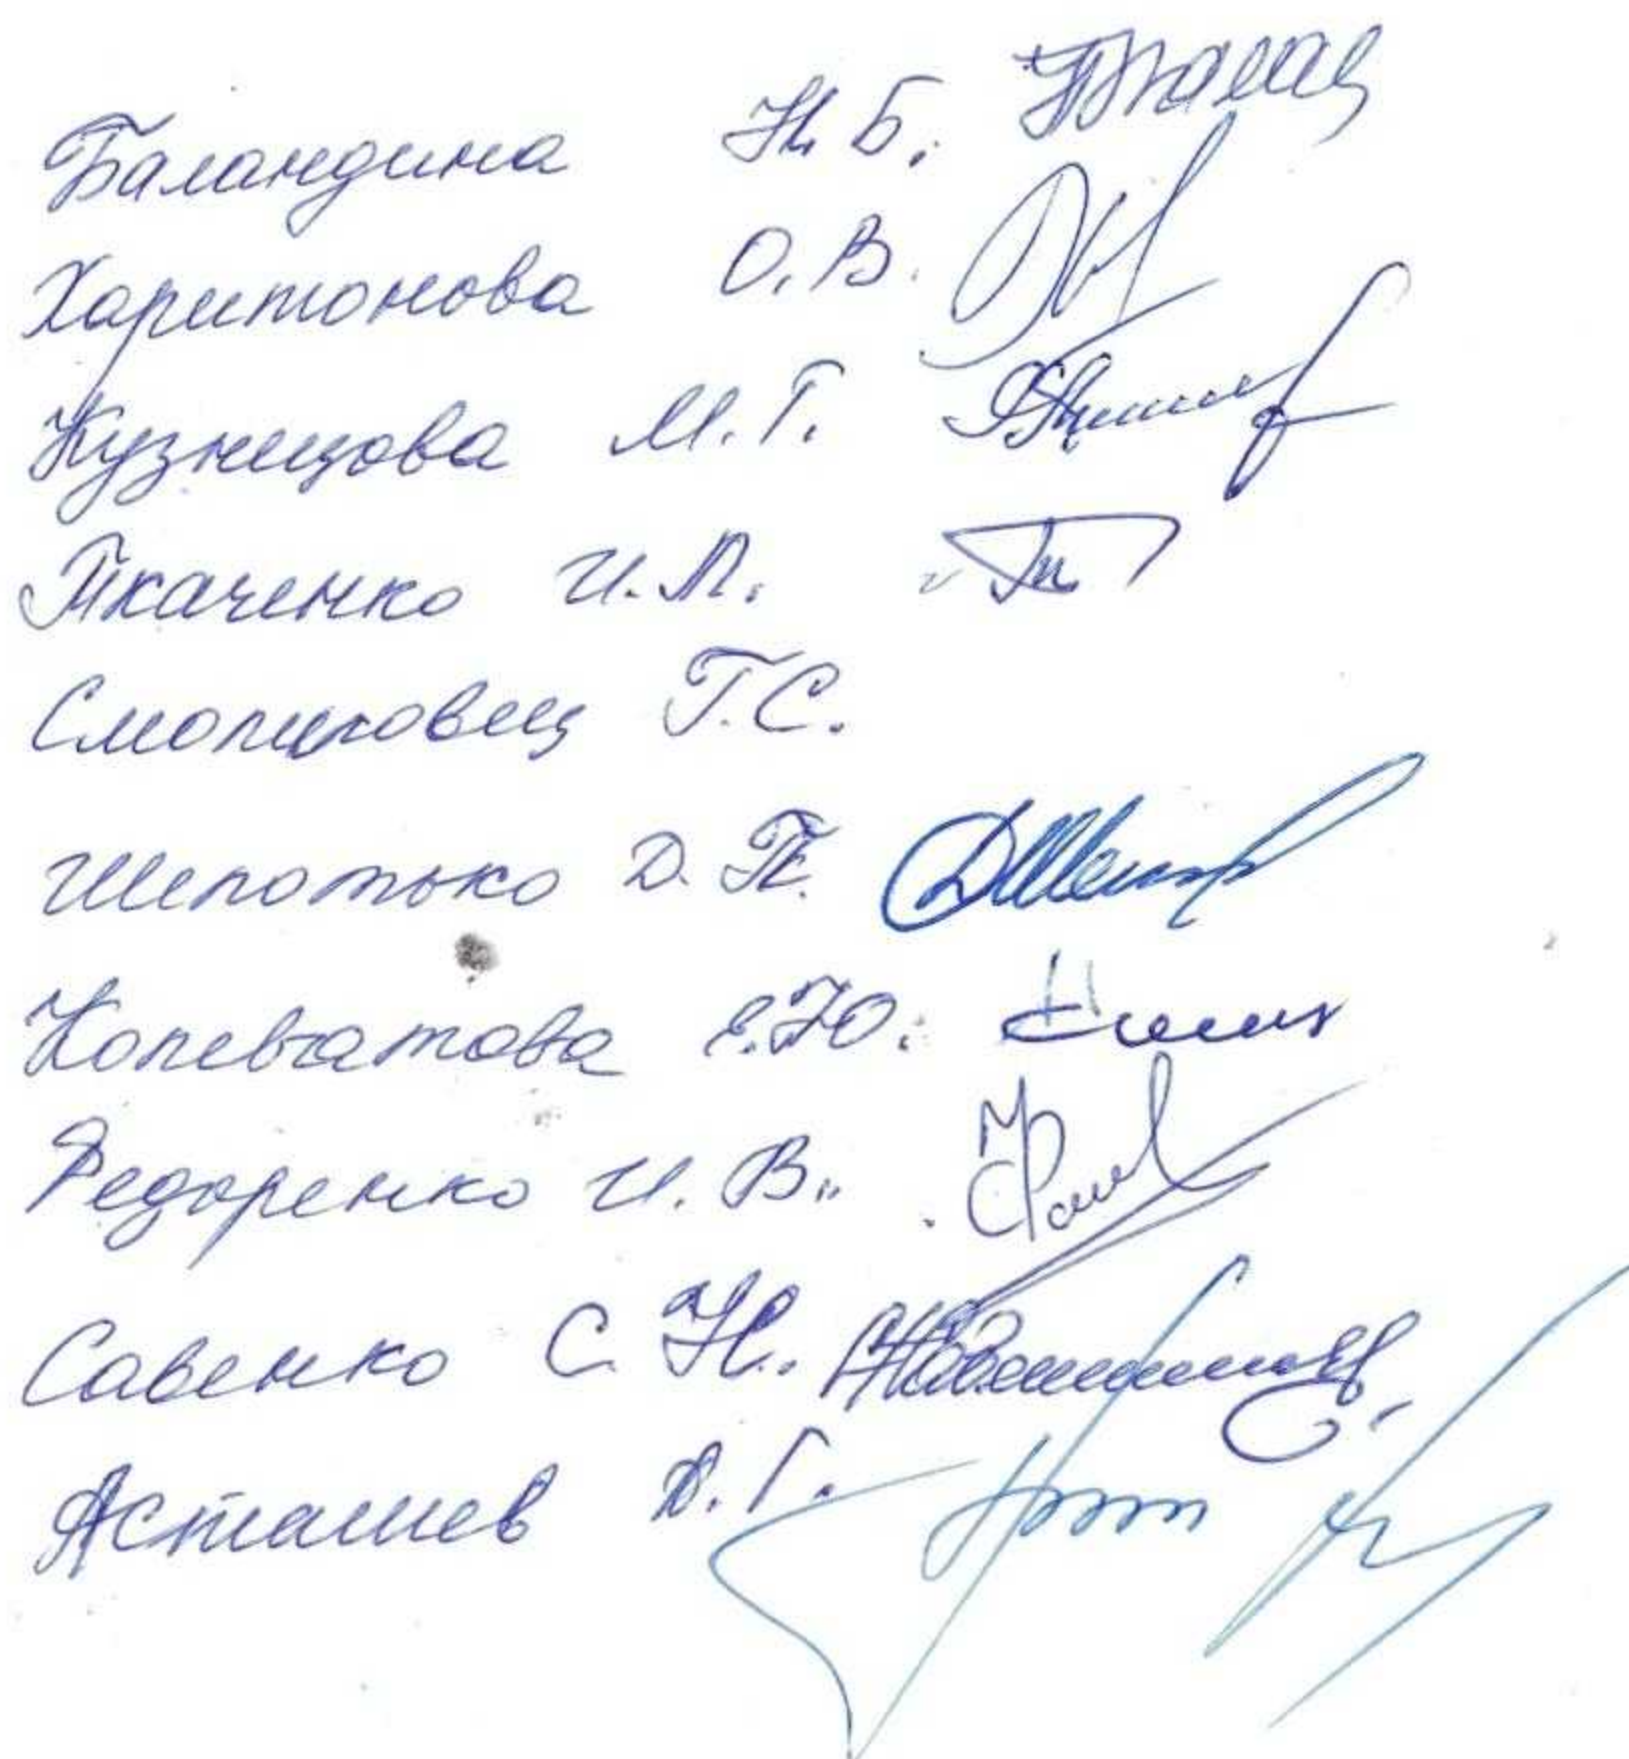 Баландина Н.Б.
Харитонова О.В.
Кузнецова М.Г.
Ткаченко И.Л.
Г.С.
Шепотько Д.П.
Копеватова Е.Ю.
Федоренко И.В.
Савенко С.Н.
Асташев А.Г.